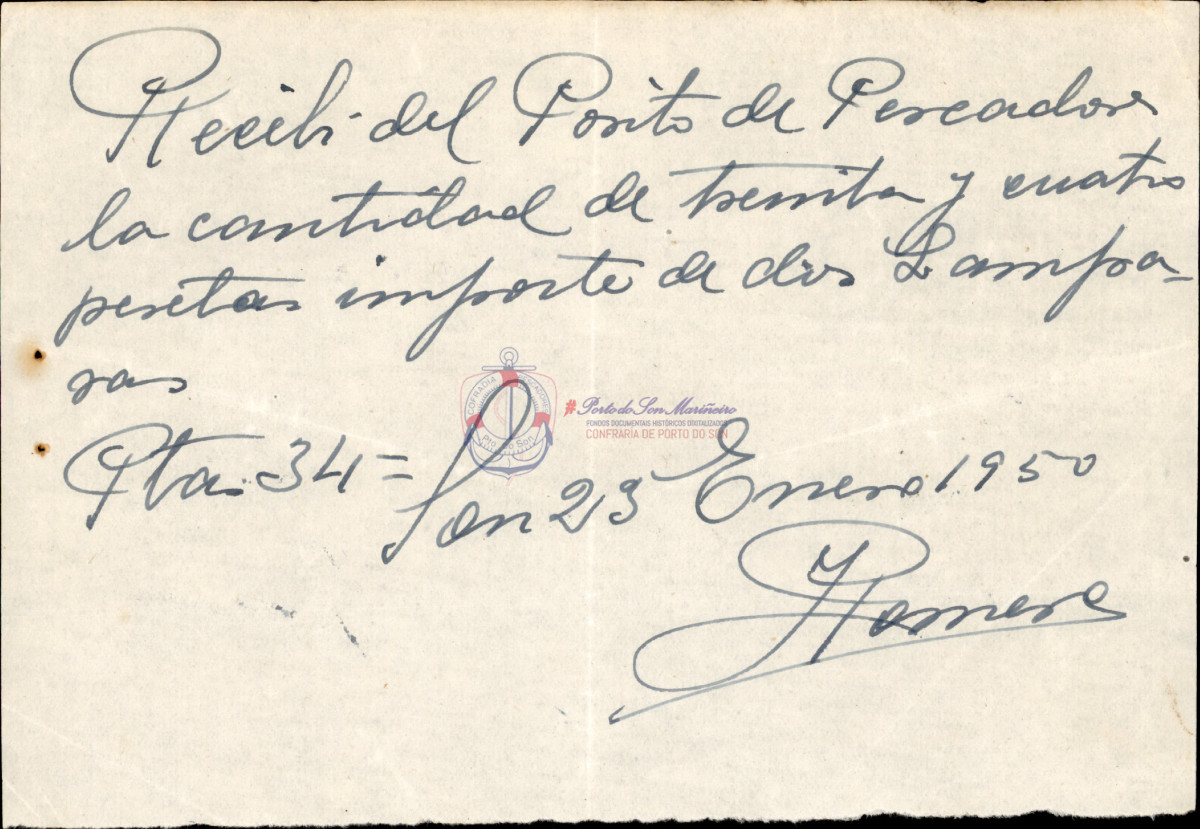 Recibi del Posito de Pescadores
la cantidad de treinta y cuatro
pesetas importe de dos Lampa-
ras
COFRADIA PESCADORES
Pto. do Son
#Porto do Son Mariñeiro
FONDOS DOCUMENTAIS HISTÓRICOS DIXITALIZADOS
CONFRARÍA DE PORTO DO SON
Ptas. 34 = Son 23 Enero 1950
Romero